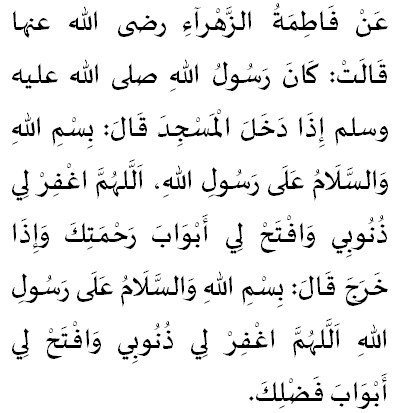 عَنْ فَاطِمَةُ الزَّهْرَآءِ رضى الله عنها
قَالَتْ: كَانَ رَسُولُ اللهِ صلى الله عليه
وسلم إِذَا دَخَلَ الْمَسْجِدَ قَالَ: بِسْمِ اللهِ
وَالسَّلَامُ عَلَى رَسُولِ اللهِ، اَللّهُمَّ اغْفِرْ لِي
ذُنُوبِي وَافْتَحْ لِي أَبْوَابَ رَحْمَتِكَ وَإِذَا
خَرَجَ قَالَ: بِسْمِ اللهِ وَالسَّلَامُ عَلَى رَسُولِ
اللهِ اَللّهُمَّ اغْفِرْ لِي ذُنُوبِي وَافْتَحْ لِي
أَبْوَابَ فَضْلِكَ.